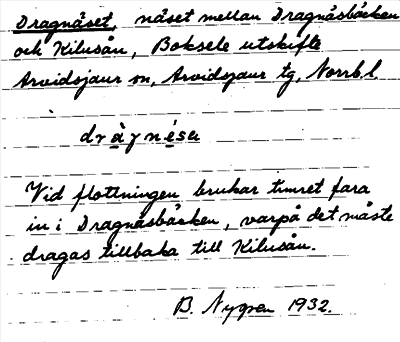 Dragnäset, näset mellan Dragnäsbäcken
och Kilusån, Boksele utskifte
Arvidsjaur sn, Arvidsjaur tg, Norrb.l.
dràɣnésɐ
Vid flottningen brukar timret fara
in i Dragnäsbäcken, varpå det måste
dragas tillbaka till Kilusån.
B. Nygren 1932.